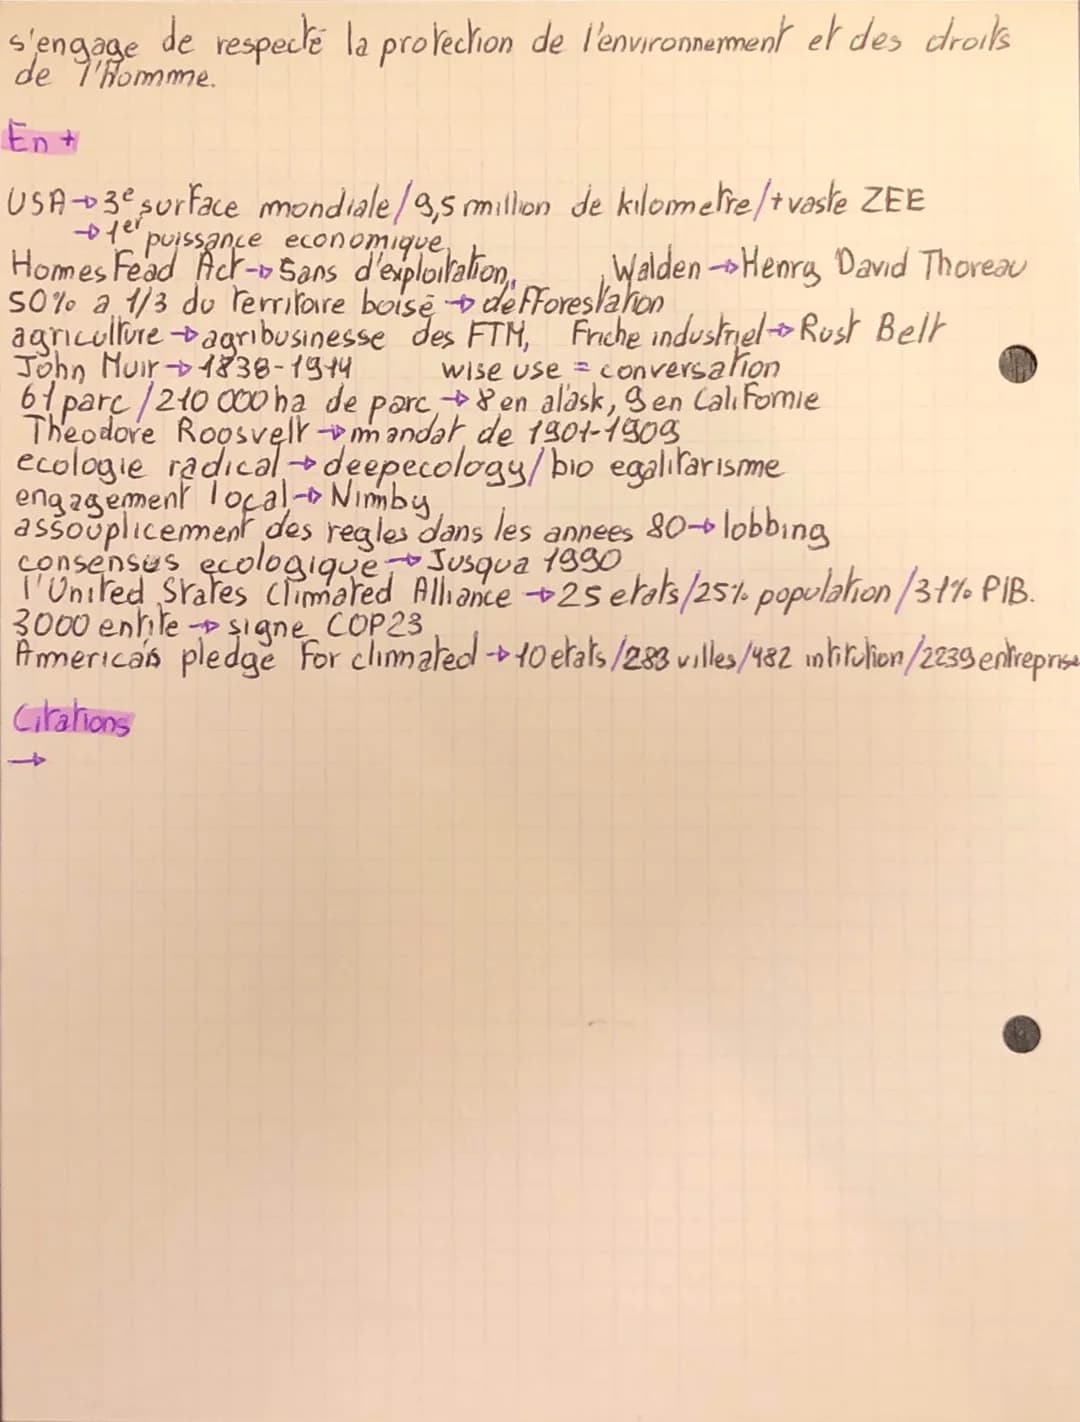 s'engage de respecté la protection de l'environnemment et des droits
de l'Hommme.
En +
USA→3e surface mondiale/9,5 million de kilometre/+vaste ZEE
→1er puissance economique,
HomesFead Act→5ans d'exploitation,, Walden→Henry David Thoreau
50% a 1/3 du territoire boisé→defforestation
agriculture→agribusinesse des FTM, Friche industriel→Rust Belt
John Muir→1838-1914 wise use = conversation
61 parc/210 000ha de parc→8 en alask, 9 en Californie
Theodore Roosvelt→mandat de 1901-1909
ecologie radical→deepecology/bio egalitarisme
engagement local→Nimby
assouplicement des regles dans les annees 80→lobbing
consensus ecologique→Jusqua 1990
l'United States Climated Alliance→25 etats/25% population/31% PIB.
3000 entite→signe COP23
Americais pledge For climated→10etats/283 villes/482 intitution/2239 entreprise
Citations
→